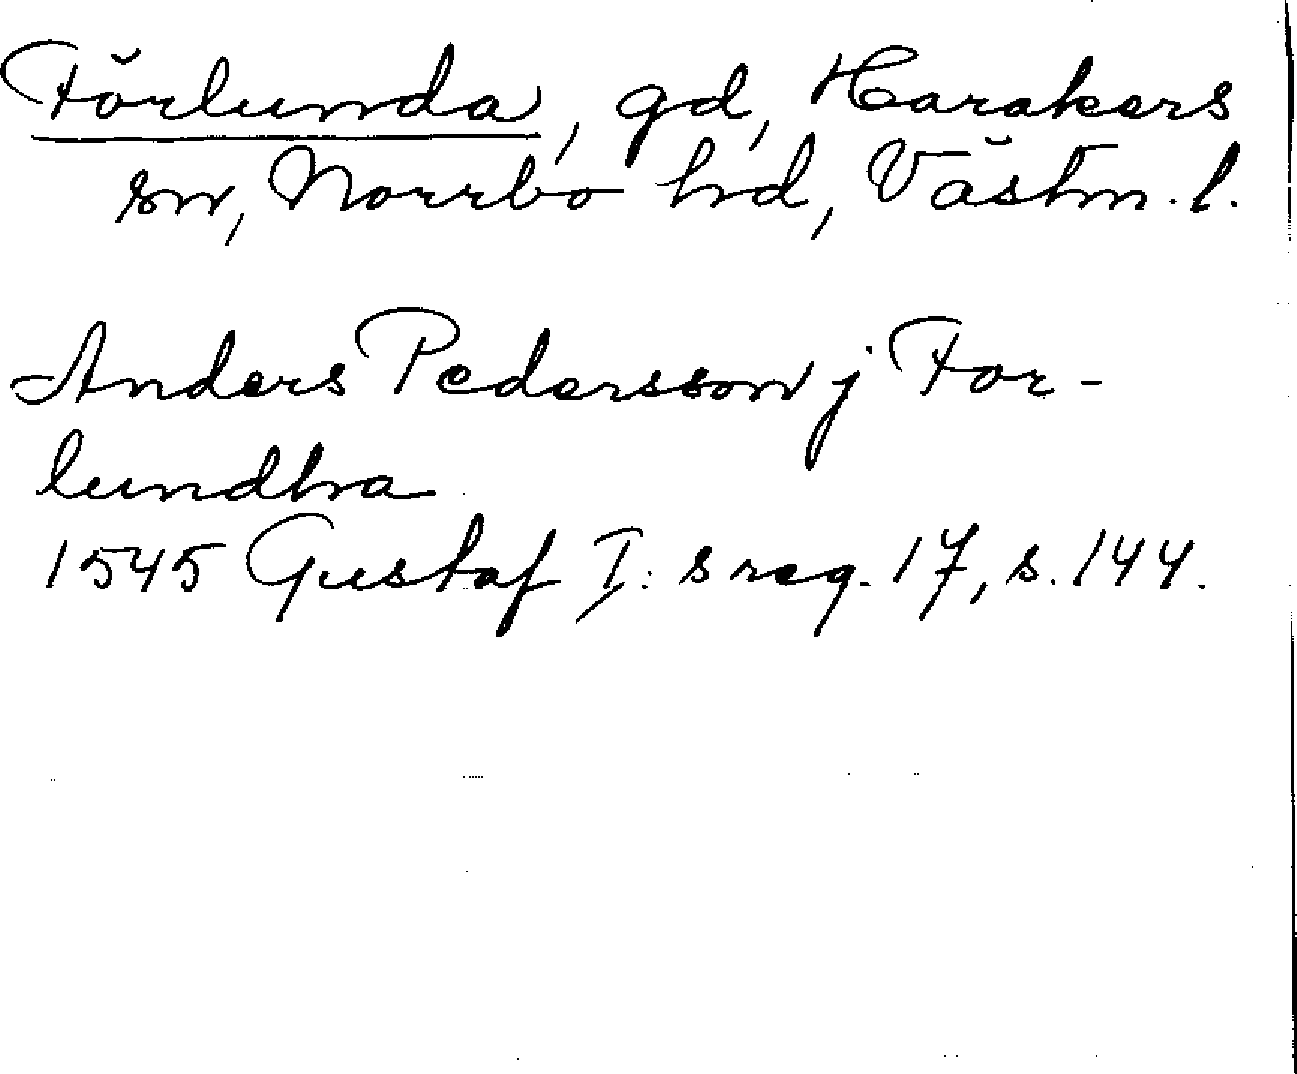 Förlunda, gd, Harakers
sn, Norrbo hd, Västm. l.
Anders Pedersson j For-
lundha
1545 Gustaf I:s reg. 17, s. 144.